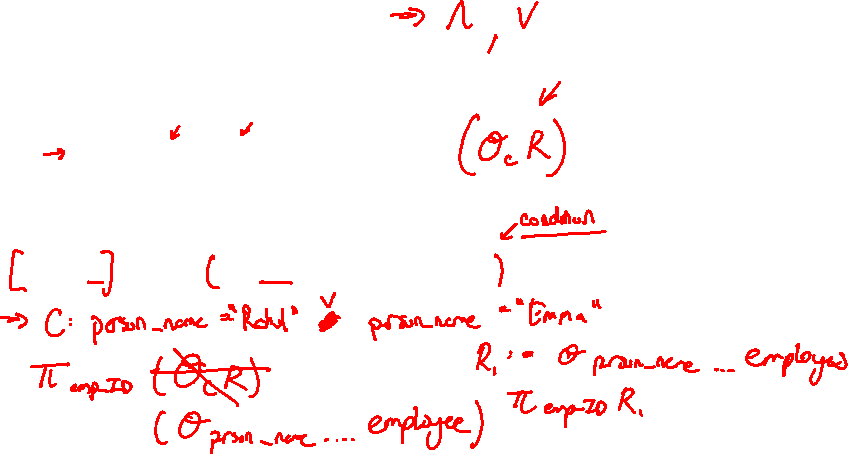 → Λ , V
(σ_c R)
condition
[ _] ( _ )
→ C: person_name = "Rahul" V person_name = "Emma"
π emp_ID (σ_c R)
R₁ := σ person_name ... employee
(σ person_name .... employee)
π emp_ID R₁